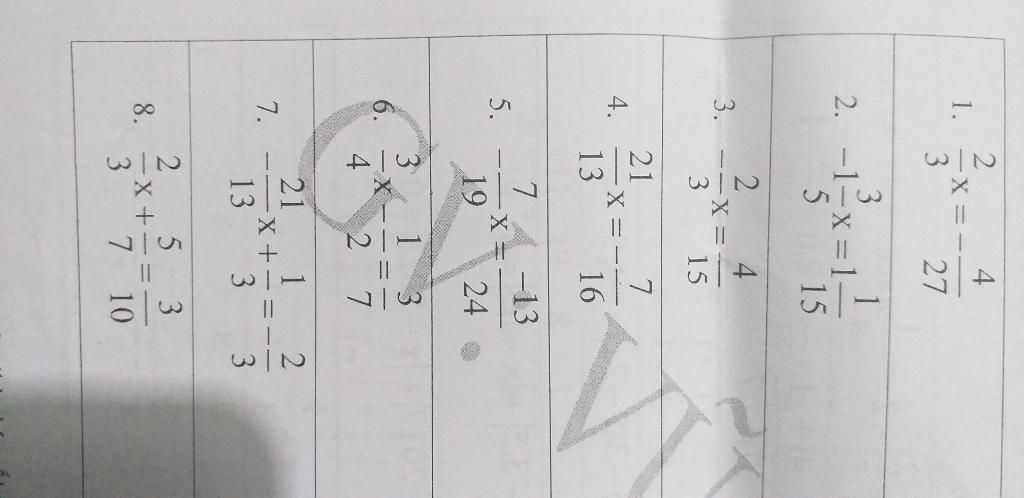 1. 2/3 x = - 4/27
2. -1 3/5 x = 1 1/15
3. - 2/3 x = 4/15
4. 21/13 x = - 7/16
5. - 7/19 x = -13/24
6. 3/4 x - 1/2 = 3/7
7. - 21/13 x + 1/3 = - 2/3
8. 2/3 x + 5/7 = 3/10
GV. VŨ